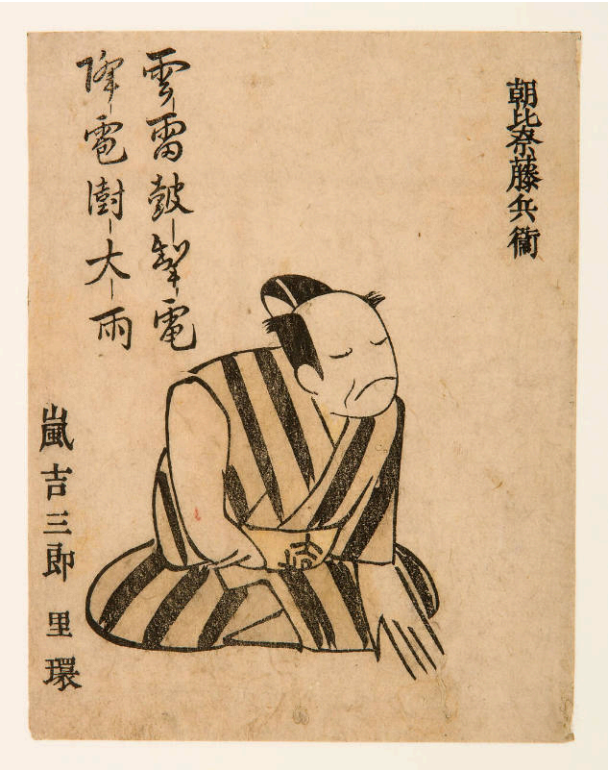 朝比奈藤兵衛
雲雷鼓掣電
降雹澍大雨
嵐吉三郎 里環